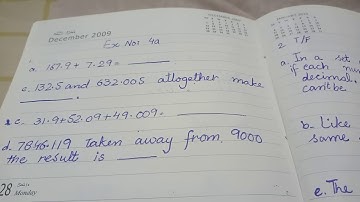 December 2009
Ex No: 4a
a. 167.9 + 7.29 =
e. 132.5 and 632.005 altogether make
c. 31.9+52.09+49.009=
d. 7846.119 Taken away from 9000
the result is
28
Monday
2 T/F
a. In a set
if each num
decimal.
can't be
b. Like
same
e. The